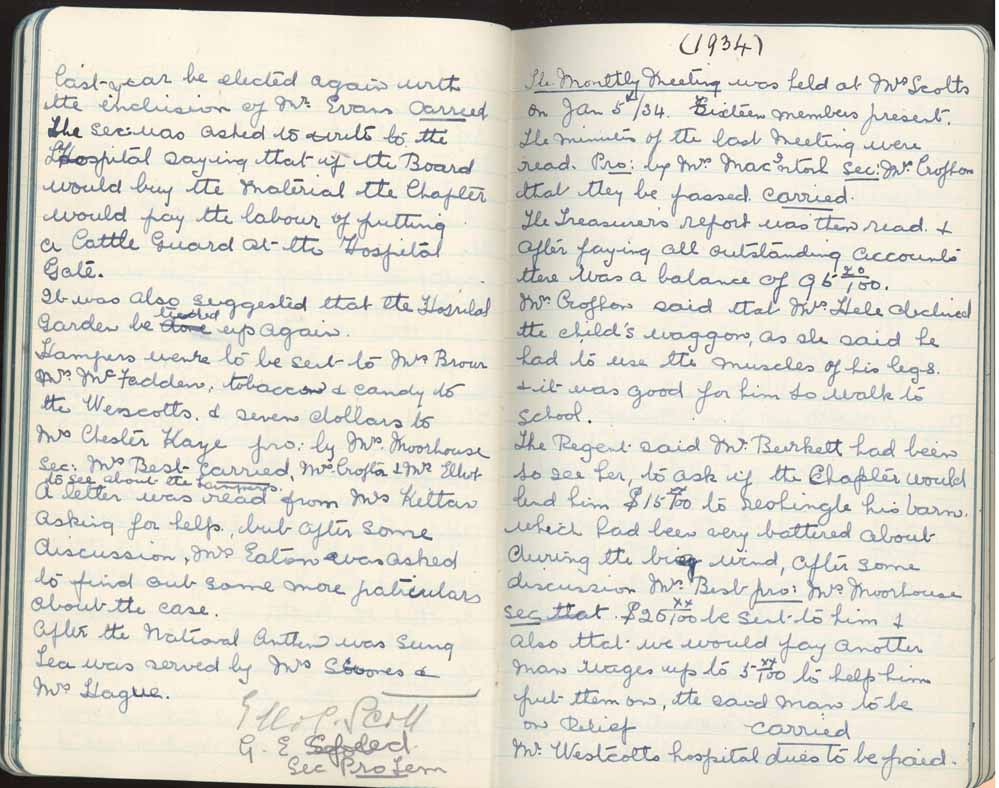 last year be elected again with
the inclusion of Mrs Evans carried
The sec: was asked to write to the
Hospital saying that if the Board
would buy the material the Chapter
would pay the labour of putting
a Cattle Guard at the Hospital
Gate.
It was also suggested that the Hospital
Garden be done up again.
Hampers were to be sent to Mrs Brown
Mrs McFadden, tobacco & candy to
the Wescotts. & seven dollars to
Mrs Chester Kaye pro: by Mrs Moorhouse
Sec: Mrs Best carried, Mrs Crofton & Mrs Elliot
to see about the hampers.
A letter was read from Mrs
asking for help, but after some
discussion, Mrs Eaton was asked
to find out some more paticulars
about the case.
After the National Anthem was sung
Tea was served by Mrs Stores &
Mrs Hague.
Scott
G. E
Sec Pro Tem
(1934)
The Monthly Meeting was held at Mrs Scotts
on Jan 5th/34. Sixteen members present.
The minutes of the last Meeting were
read. Pro: by Mrs Macintosh Sec: Mrs Crofton
that they be passed carried.
The Treasurers report was then read. &
after paying all outstanding accounts
there was a balance of 95 70/100.
Mrs Crofton said that Mrs Hele declined
the child's waggon, as she said he
had to use the muscles of his legs.
& it was good for him to walk to
school.
The Regent said Mr. Burkett had been
to see her, to ask if the Chapter would
lend him $15 xx/100 to reshingle his barn.
which had been very battered about
during the big wind, after some
discussion Mrs. Best pro: Mrs Moorhouse
sec that $25 xx/100 be sent to him &
also that we would pay another
man wages up to 5 xx/100 to help him
put them on, the said man to be
on Relief carried
Mr. Westcotts hospital dues to be paid.